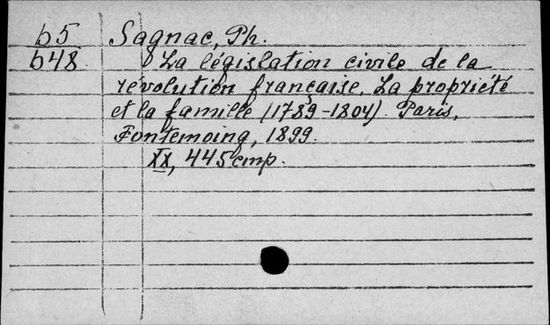 b5 Sagnac, Ph.
b48 La législation civile de la
révolution française. La propriété
et la famille (1789-1804). Paris,
Fontemoing, 1899.
XX, 445 стр.